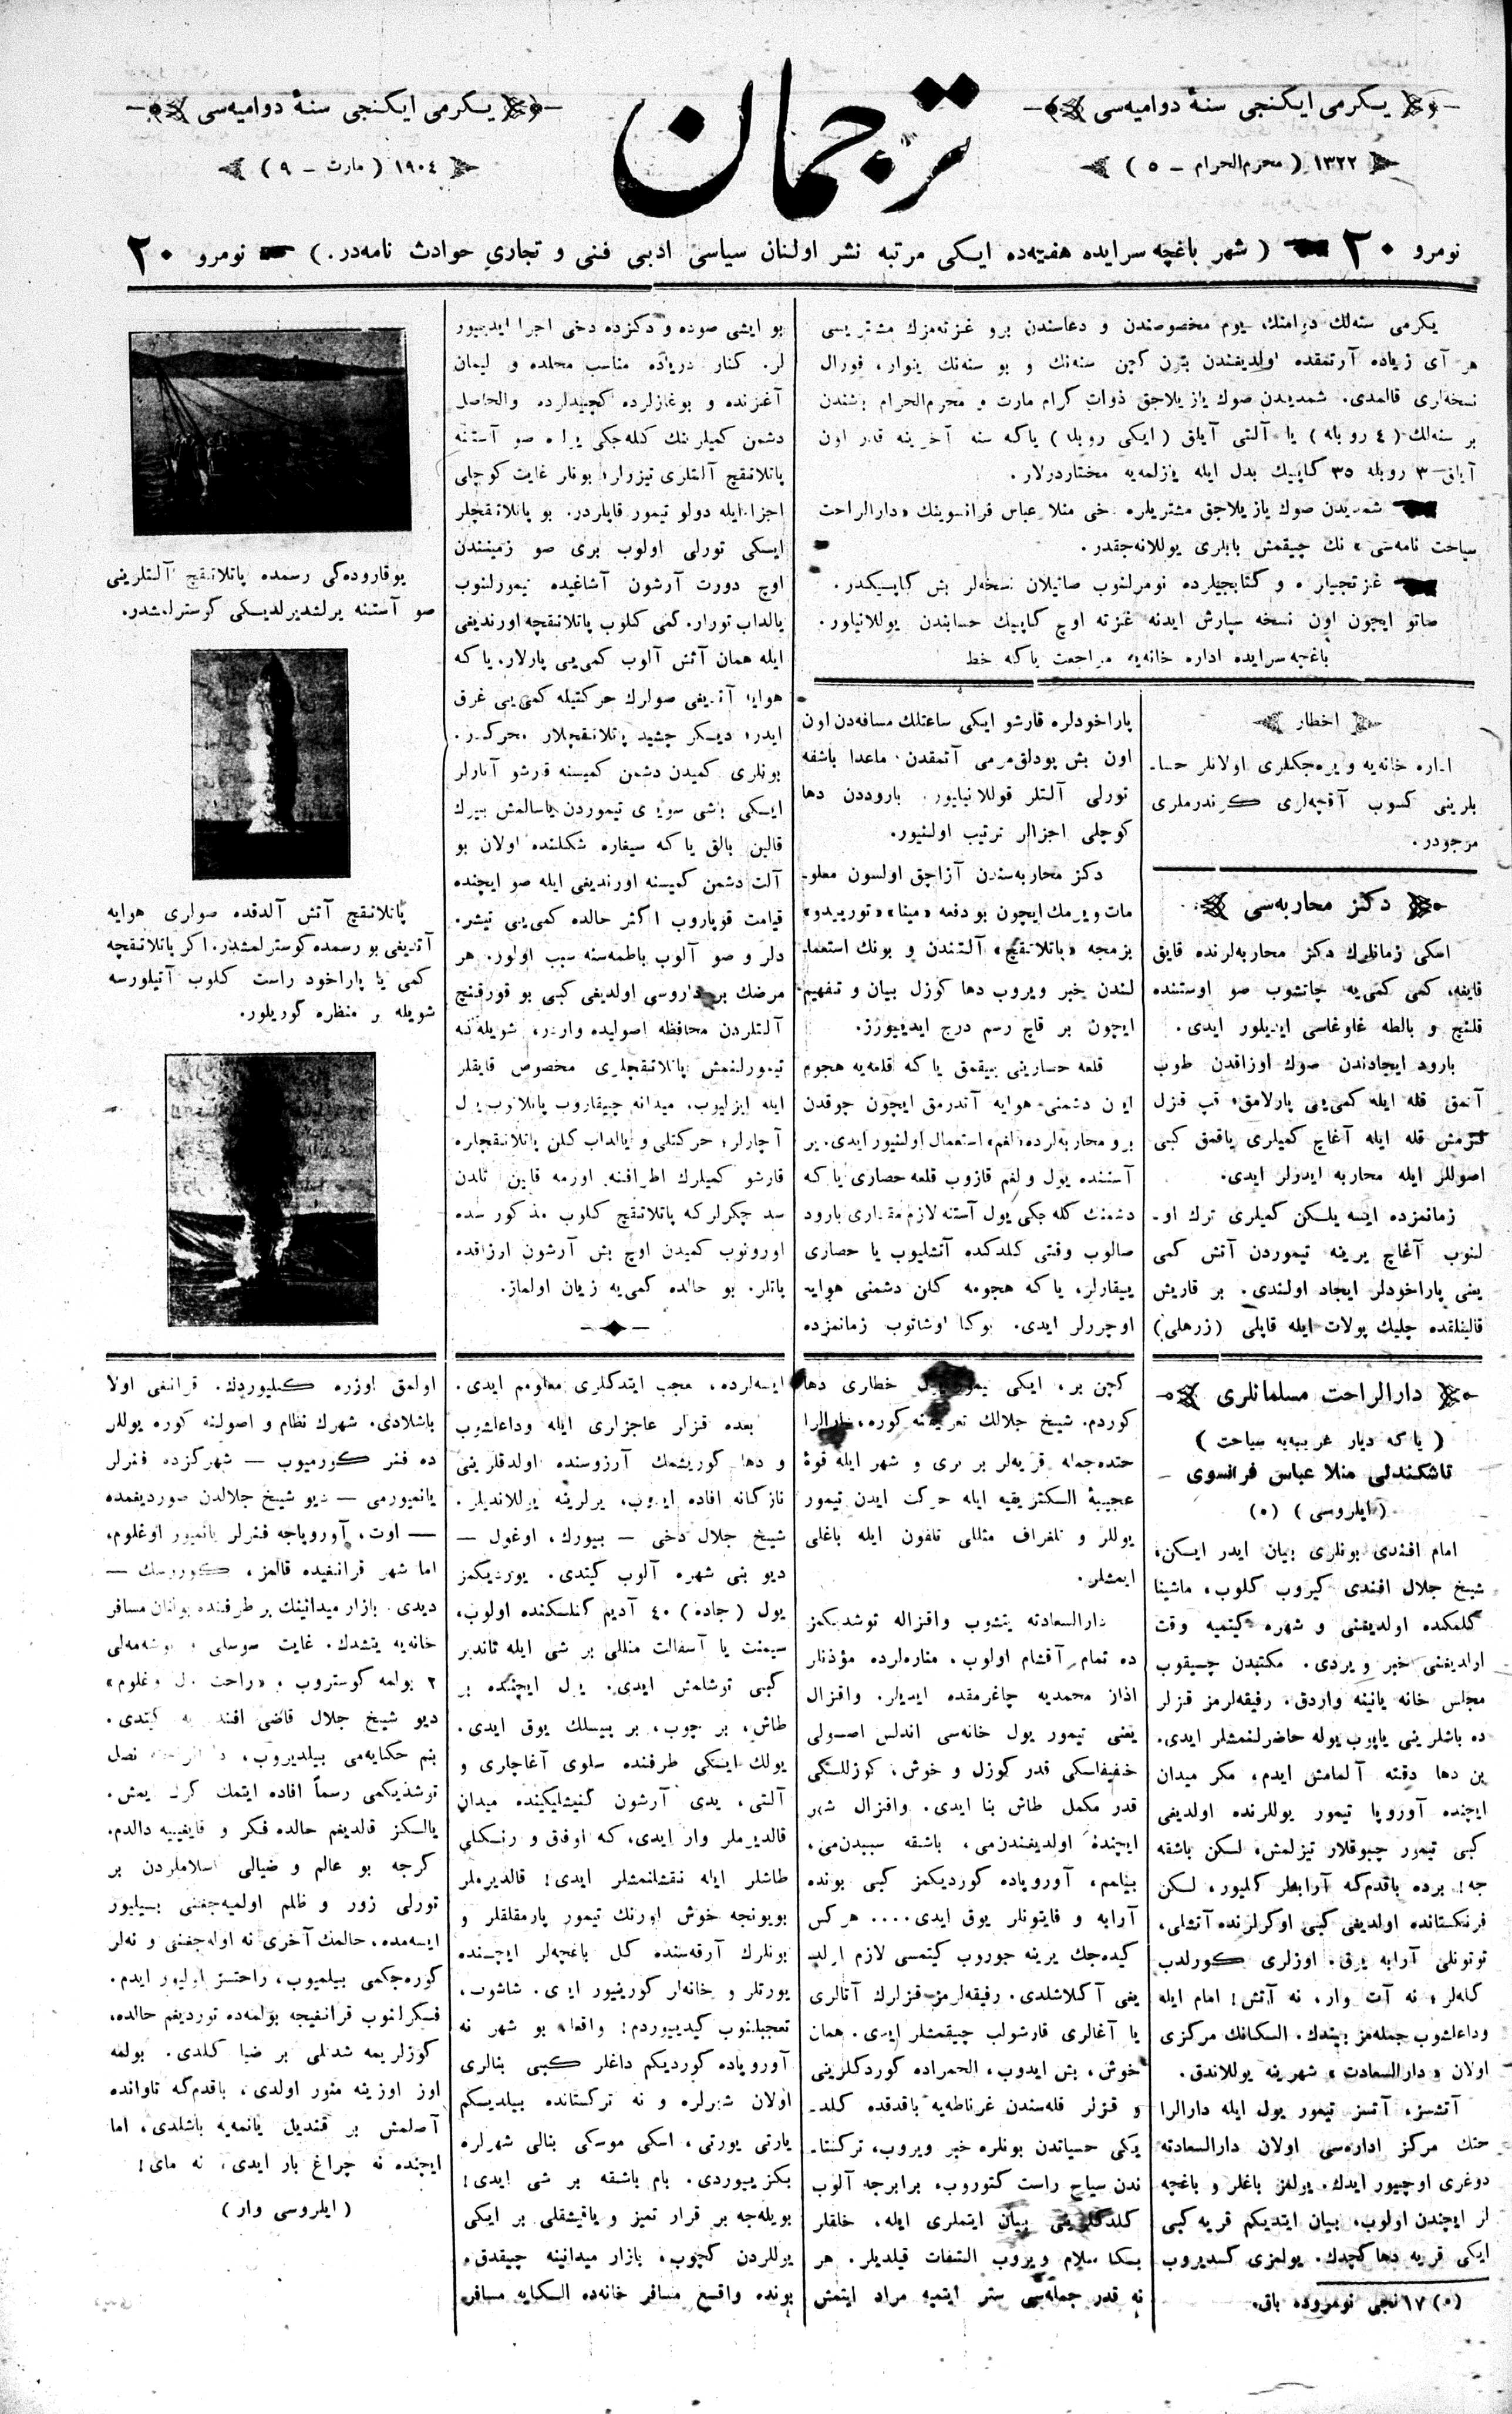 يكرمى ايكنجى سنهٔ دواميه‌سى
١٣٢٢ ( محرم‌الحرام ـ ٥ )
ترجمان
يكرمى ايكنجى سنهٔ دواميه‌سى
١٩٠٤ ( مارت ـ ٩ )
نومرو ٢٠ ( شهر باغچه سرايده هفته‌ده ايكى مرتبه نشر اولنان سياسى ادبى فنى و تجارى حوادث نامه‌در. ) نومرو ٢٠
يكرمى سنه‌لك دوامنك، يوم مخصوصندن و دعاسندن برو غزته‌مزك مشتريسى
هر آى زياده آرتمقده اولديغندن بتون كچن سنه‌نك و بو سنه‌نك ينوار، فورال
نسخه‌لرى قالمدى. شمديدن صوك يازيلاجق ذوات كرام مارت و محرم‌الحرام باشندن
بر سنه‌لك ( ٤ روبله ) يا آلتى آيلق ( ايكى روبله ) ياكه سنه آخرينه قدر اون
آيلق ٣ روبله ٣٥ كاپيك بدل ايله يازلمه‌يه مختاردرلار.
شمديدن صوك يازيلاجق مشتريلره دخى منلا عباس فرانسوينك « دارالراحت
سياحت نامه‌سى » نك چيقمش بابلرى يوللانه‌جقدر.
غزتجيلرده و كتابجيلرده نومرلنوب صاتيلان نسخه‌لر بش كاپيكدر.
صاتو ايچون اون نسخه سپارش ايدنه غزته اوچ كاپيك حسابندن يوللانياور.
باغچه‌سرايده اداره خانه‌يه مراجعت ياكه خط
اخطار
اداره خانه‌يه ويره‌جكلرى اولانلر حسا‌ـ
بلرينى كسوب آقچه‌لرى كوندرملرى
مرجودر.
دكز محاربه‌سى
اسكى زمانلرك دكز محاربه‌لرنده قايق
قايغه، كمى كمى‌يه چاتشوب صو اوستنده
قلنچ و بالطه غاوغاسى ايديلور ايدى.
بارود ايجادندن صوك اوزاقدن طوب
آتمق قله ايله كمى‌يى پارلامق، قپ قزل
قزمش قله ايله آغاچ كميلرى ياقمق كبى
اصوللر ايله محاربه ايدرلر ايدى.
زمانمزده ايسه يلكن كميلرى ترك او‌ـ
لنوب آغاچ يرينه تيموردن آتش كمى
يعنى پاراخودلر ايجاد اولندى. بر قاريش
قالينلقده چليك پولات ايله قاپلى (زرهلى)
پاراخودلره قارشو ايكى ساعتلك مسافه‌دن اون
اون بش پودلق مرمى آتمقدن ماعدا باشقه
تورلى آلتلر قوللانيليور. باروددن دها
كوچلى اجزالر ترتيب اولنيور.
دكز محاربه‌سندن آزاچق اولسون معلو‌ـ
مات ويرمك ايچون بو دفعه «مينا» «تورپيدو»
بزمجه «پاتلانقچ» آلتندن و بونك استعما‌ـ
لندن خبر ويروب دها كوزل بيان و تفهيم
ايچون بر قاچ رسم درج ايدييورز.
قلعه حصارينى ييقمق ياكه قلعه‌يه هجوم
ايدن دشمنى هوايه آتدرمق ايچون چوقدن
برو محاربه‌لرده «لغم» استعمال اولنيور ايدى. ير
آستنده يول و لغم قازوب قلعه حصارى ياكه
دشمنك كله‌جكى يول آستنه لازم مقدارى بارود
صالوب وقتى كلدكده آتشليوب يا حصارى
ييقارلر، ياكه هجومه كلن دشمنى هوايه
اوچررلر ايدى. بوكا اوشاتوب زمانمزده
بو ايشى صوده و دكزده دخى اجرا ايدييور
لر. كنار درياده مناسب محلده و ليمان
آغزنده و بوغازلرده كچيدلرده والحاصل
دشمن كميلرينك كله‌جكى يرلره صو آستنه
پاتلانقچ آلتلرى تيزرلر؛ بونلر غايت كوچلى
اجزا ايله دولو تيمور قاپلردر. بو پاتلانقچلر
ايكى تورلى اولوب برى صو زميننندن
اوچ دورت آرشون آشاغيده تيمورلنوب
يالداب تورار. كمى كلوب پاتلانقچه اورنديغى
ايله همان آتش آلوب كمى‌يى پارلار. ياكه
هوايه آتديغى صولرك حركتيله كمى‌يى غرق
ايدر؛ ديكر چشيد پاتلانقچلار محركدر.
بونلرى كميدن دشمن كميسنه قارشو آتارلر
ايكى باشى سورى تيموردن ياسالمش بيوك
قالين بالق ياكه سيغاره شكلنده اولان بو
آلت دشمن كميسنه اورنديغى ايله صو ايچنده
قيامت قوپاروب اكثر حالده كمى‌يى تيشر.
دلر و صو آلوب باطمه‌سنه سبب اولور. هر
مرضك بر داروسى اولديغى كبى بو قورقنچ
آلتلردن محافظه اصوليده واردر، شويله‌كه
تيمورلنمش پاتلانقچلرى مخصوص قايقلر
ايله ايزليوب، ميدانه چيقاروب پاتلاتوب يول
آچارلر؛ حركتلى و يالداب كلن پاتلانقچلره
قارشو كميلرك اطرافنه اورمه قالين تلدن
سد چكرلركه پاتلانقچ كلوب مذكور سده
اورونوب كميدن اوچ بش آرشون ارزاقده
پاتلر. بو حالده كمى‌يه زيان اولماز.
يوقاروده‌كى رسمده پاتلانقچ آلتلرينى
صو آستنه يرلشديرلديكى كوسترلمشدر.
پاتلانقچ آتش آلدقده صولرى هوايه
آتديغى بو رسمده كوسترلمشدر. اكر پاتلانقچه
كمى يا پاراخود راست كلوب آتيلورسه
شويله بر منظره كوريلور.
دارالراحت مسلمانلرى
( ياكه ديار غريبه‌يه سياحت )
تاشكندلى منلا عباس فرانسوى
( ايلروسى ) (٥)
امام افندى بونلرى بيان ايدر ايكن،
شيخ جلال افندى كيروب كلوب، ماشينا
كلمكده اولديغنى و شهره كيتميه وقت
اولديغنى خبر ويردى. مكتبدن چيقوب
مجلس خانه يانينه واردق. رفيقه‌لرمز قزلر
ده باشلرينى ياپوب يوله حاضرلنمشلر ايدى.
بن دها دقته آلمامش ايدم، مكر ميدان
ايچنده آوروپا تيمور يوللرنده اولديغى
كبى تيمور چبوقلار تيزلمش، لكن باشقه
جه! برده باقدم‌كه آرابه‌لر كليور، لكن
فرنكستانده اولديغى كبى اوكرلرنده آتشلى،
توتونلى آرابه يوق. اوزلرى كورلدب
كله‌لر؛ نه آت وار، نه آتش! امام ايله
وداعلشوب جمله‌مز بيتدك. الكانك مركزى
اولان « دارالسعادت » شهرينه يوللاندق.
آتشسز، آتسز تيمور يول ايله دارالرا
حتك مركز اداره‌سى اولان دارالسعادته
دوغرى اوچيور ايدك. يولمز باغلر و باغچه
لر ايچندن اولوب، بيان ايتديكم قريه كبى
ايكى قريه دها كچدك. يولمزى كسديروب
(٥) ١٧ نجى نومروده باق.
كچن بر، ايكى تيمور يول خطارى دها
كوردم. شيخ جلالك تعريفنه كوره، دارالرا
حتده جمله قريه‌لر بر برى و شهر ايله قوهٔ
عجيبهٔ الكتريقيه ايله حركت ايدن تيمور
يوللر و تلغراف مثللى تلفون ايله باغلى
ايمشلر.
دارالسعادته يتشوب واقزاله توشديكمز
ده تمام آقشام اولوب، مناره‌لرده مؤذنلر
اذان محمديه چاغرمقده ايديلر. واقزال
يعنى تيمور يول خانه‌سى اندلس اصولى
خفيفلكى قدر كوزل و خوش، كوزللكى
قدر مكمل طاش بنا ايدى. واقزال شهر
ايچنده اولديغندن‌مى، باشقه سببدن‌مى،
بيلمم، آوروپاده كورديكمز كبى بونده
آرابه و فايتونلر يوق ايدى.... هركس
كيده‌جك يرينه جوروب كيتمسى لازم اولد
يغى آكلاشلدى. رفيقه‌لرمز قزلرك آتالرى
يا آغالرى قارشولب چيقمشلر ايدى. همان
خوش، بش ايدوب، الحمراده كوردكلرينى
و قزلر قله‌سندن غرناطه‌يه باقدقده كلد‌ـ
يكى حسياتدن بونلره خبر ويروب، تركستا‌ـ
ندن سياح راست كتوروب، برابرجه آلوب
كلدكلرينى بيان ايتملرى ايله، خلقلر
بكا سلام ويروب التفات قيلديلر. هر
نه قدر جمله‌سى ستر ايتميه مراد ايتمش
ايسه‌لرده، عجب ايتدكلرى معلوم ايدى.
بعده قزلر عاجزلرى ايله وداعلشوب
و دها كوريشمك آرزوسنده اولدقلرينى
نازكانه افاده ايدوب، يرلرينه يوللانديلر.
شيخ جلال دخى — بيورك، اوغول —
ديو بنى شهره آلوب كيتدى. يوريديكمز
يول ( جاده ) ٤٠ آديم كنلكنده اولوب،
سيمنت يا آسفالت مثللى بر شى ايله تاندير
كبى توشلمش ايدى. يول ايچنده بر
طاش، بر چوب، بر پيسلك يوق ايدى.
يولك ايكى طرفنده سلوى آغاچلرى و
آلتى، يدى آرشون كنيشليكينده ميدان
قالديرملر وار ايدى، كه اوفق و رنكلى
طاشلر ايله نقشلنمشلر ايدى! قالديرملر
بويونجه خوش اورنك تيمور پارمقلقلر و
بونلرك آرقه‌سنده كل باغچه‌لر ايچنده
يورتلر و خانه‌لر كورينيور ايدى. شاشوب،
تعجبلنوب كيدييوردم! واقعا، بو شهر نه
آوروپاده كورديكم داغلر كبى بنالرى
اولان شهرلره و نه تركستانده بيلديكم
يارتى يورتى، اسكى موسكى بنالى شهرلره
بكزييوردى. بام باشقه بر شى ايدى!
بويله‌جه بر قرار تميز و ياقيشقلى بر ايكى
يوللردن كچوب، بازار ميدانينه چيقدق.
بونده واقع مسافر خانه‌ده الكايه مسافر
اولمق اوزره كليوردك. قرانغى اولا
باشلادى. شهرك نظام و اصولنه كوره يوللر
ده فنر كورميوب — شهركزده فنرلر
يانميورمى — ديو شيخ جلالدن صورديغمده
— اوت، آوروپاجه فنرلر يانميور اوغلوم،
اما شهر قرانغيده قالمز، كورورسك —
ديدى. بازار ميدانينك بر طرفنده بولنان مسافر
خانه‌يه يتشدك. غايت سوسلى و دوشه‌مه‌لى
٢ بولمه كوستروب « راحت اول اوغلوم »
ديو شيخ جلال قاضى افندى‌يه كيتدى.
بنم حكايه‌مى بيلديروب، نصل
توشديكمى رسماً افاده ايتمك كرك ايمش.
يالكز قالديغم حالده فكر و قايغييه دالدم.
كرچه بو عالم و ضيالى اسلاملردن بر
تورلى زور و ظلم اولميه‌جغنى بيليور
ايسه‌مده، حالمك آخرى نه اوله‌جغنى و نه‌لر
كوره‌جكمى بيلميوب، راحتسز اوليور ايدم.
فكرلنوب قرانغيجه بولمه‌ده تورديغم حالده،
كوزلريمه شدتلى بر ضيا كلدى. بولمه
اوز اوزينه منور اولدى، باقدم‌كه تاوانده
آصلمش بر قنديل يانمه‌يه باشلدى، اما
ايچنده نه چراغ بار ايدى، نه ماى!
( ايلروسى وار )